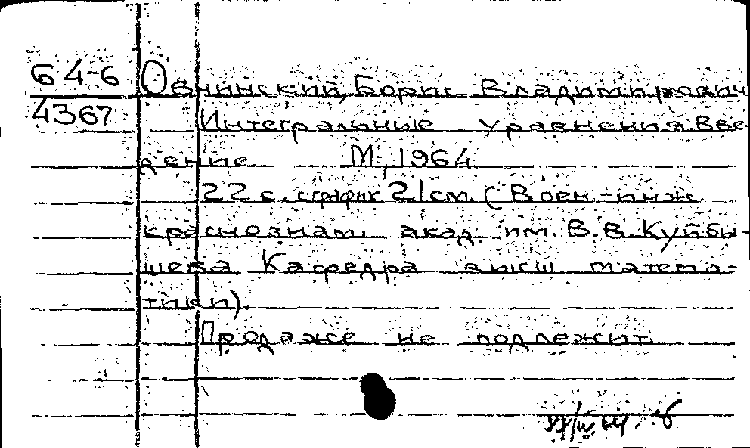 64-6 Овчинский, Борис Владимирович
4367 Интегральные уравнения. Вве-
дение М, 1964
22 с. с граф. 21 см. (Воен.-инж.
краснознам. акад. им. В.В. Куйбы-
шева Кафедра высш. матема-
тики).
Продаже не подлежит